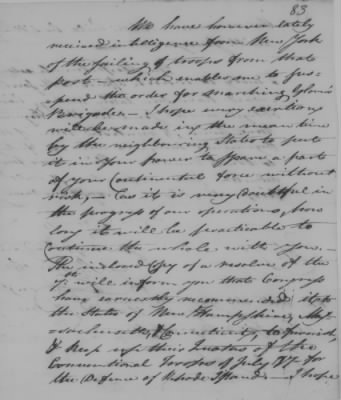 83
We have however lately
received intelligence from New York
of the sailing of troops from that
Port — which enables me to sus-
pend the order for marching Glover's
Brigade — I hope every exertion
will be made in the mean time
by the neighbouring States to put
it in your power to spare a part
of your Continental force without
risk, — as it is very doubtful in
the progress of our operations, how
long it will be practicable to
continue the whole with you. —
The inclosed Copy of a resolve of the
7th will inform you that Congress
have earnestly recommended it to
the States of New Hampshire, Mas-
sachusetts, & Connecticut, to furnish,
& keep up their Quotas of the
Conventional Troops of July 77 for
the Defence of Rhode Island — I hope